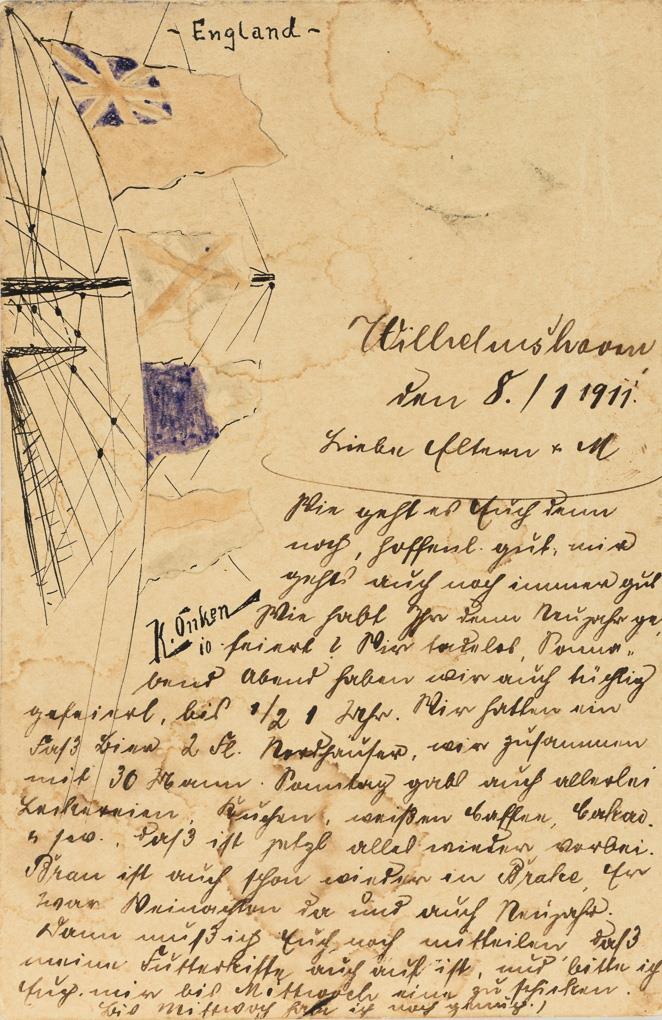 - England -
Wilhelmshaven
den 8. / 1 1911.
Liebe Eltern & M
Wie geht es Euch denn
noch, hoffentl. gut, mir
gehts auch noch immer gut
Wie habt Ihr denn Neujahr ge,
K. Onken
10
feiert? Wir tadellos, Sonna„
bend Abend haben wir auch tüchtig
gefeiert, bis 1/2 1 Uhr. Wir hatten ein
Faß Bier 2 Fl. Nordhäuser, wir zusammen
mit 30 Mann. Sonntag gabs auch allerlei
Leckereien, Kuchen, weißen Caffee, Cakao.
u sw. Daß ist jetzt alles wieder vorbei.
ist auch schon wieder in Brake, Er
war Weinachten da und auch Neujahr.
Dann muß ich Euch noch mitteilen, daß
meine Futterkiste auch auf ist, und bitte ich
Euch mir bis Mittwoch eine zu schicken.
bis Mittwoch hab ich noch genug.)